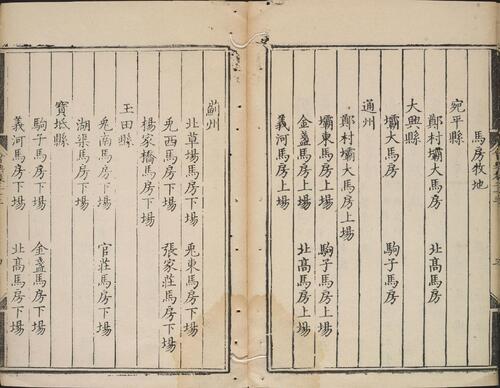 馬房牧地
宛平縣
鄭村壩大馬房 北高馬房
大興縣
壩大馬房 駒子馬房
通州
鄭村壩大馬房上塲
壩東馬房上塲 駒子馬房上塲
金盞馬房上塲 北高馬房上塲
義河馬房上塲
薊州
北草塲馬房下塲 兎東馬房下塲
兎西馬房下塲 張家莊馬房下塲
楊家橋馬房下塲
玉田縣
兎南馬房下塲 官莊馬房下塲
湖渠馬房下塲
寳坻縣
駒子馬房下塲 金盞馬房下塲
義河馬房下塲 北高馬房下塲